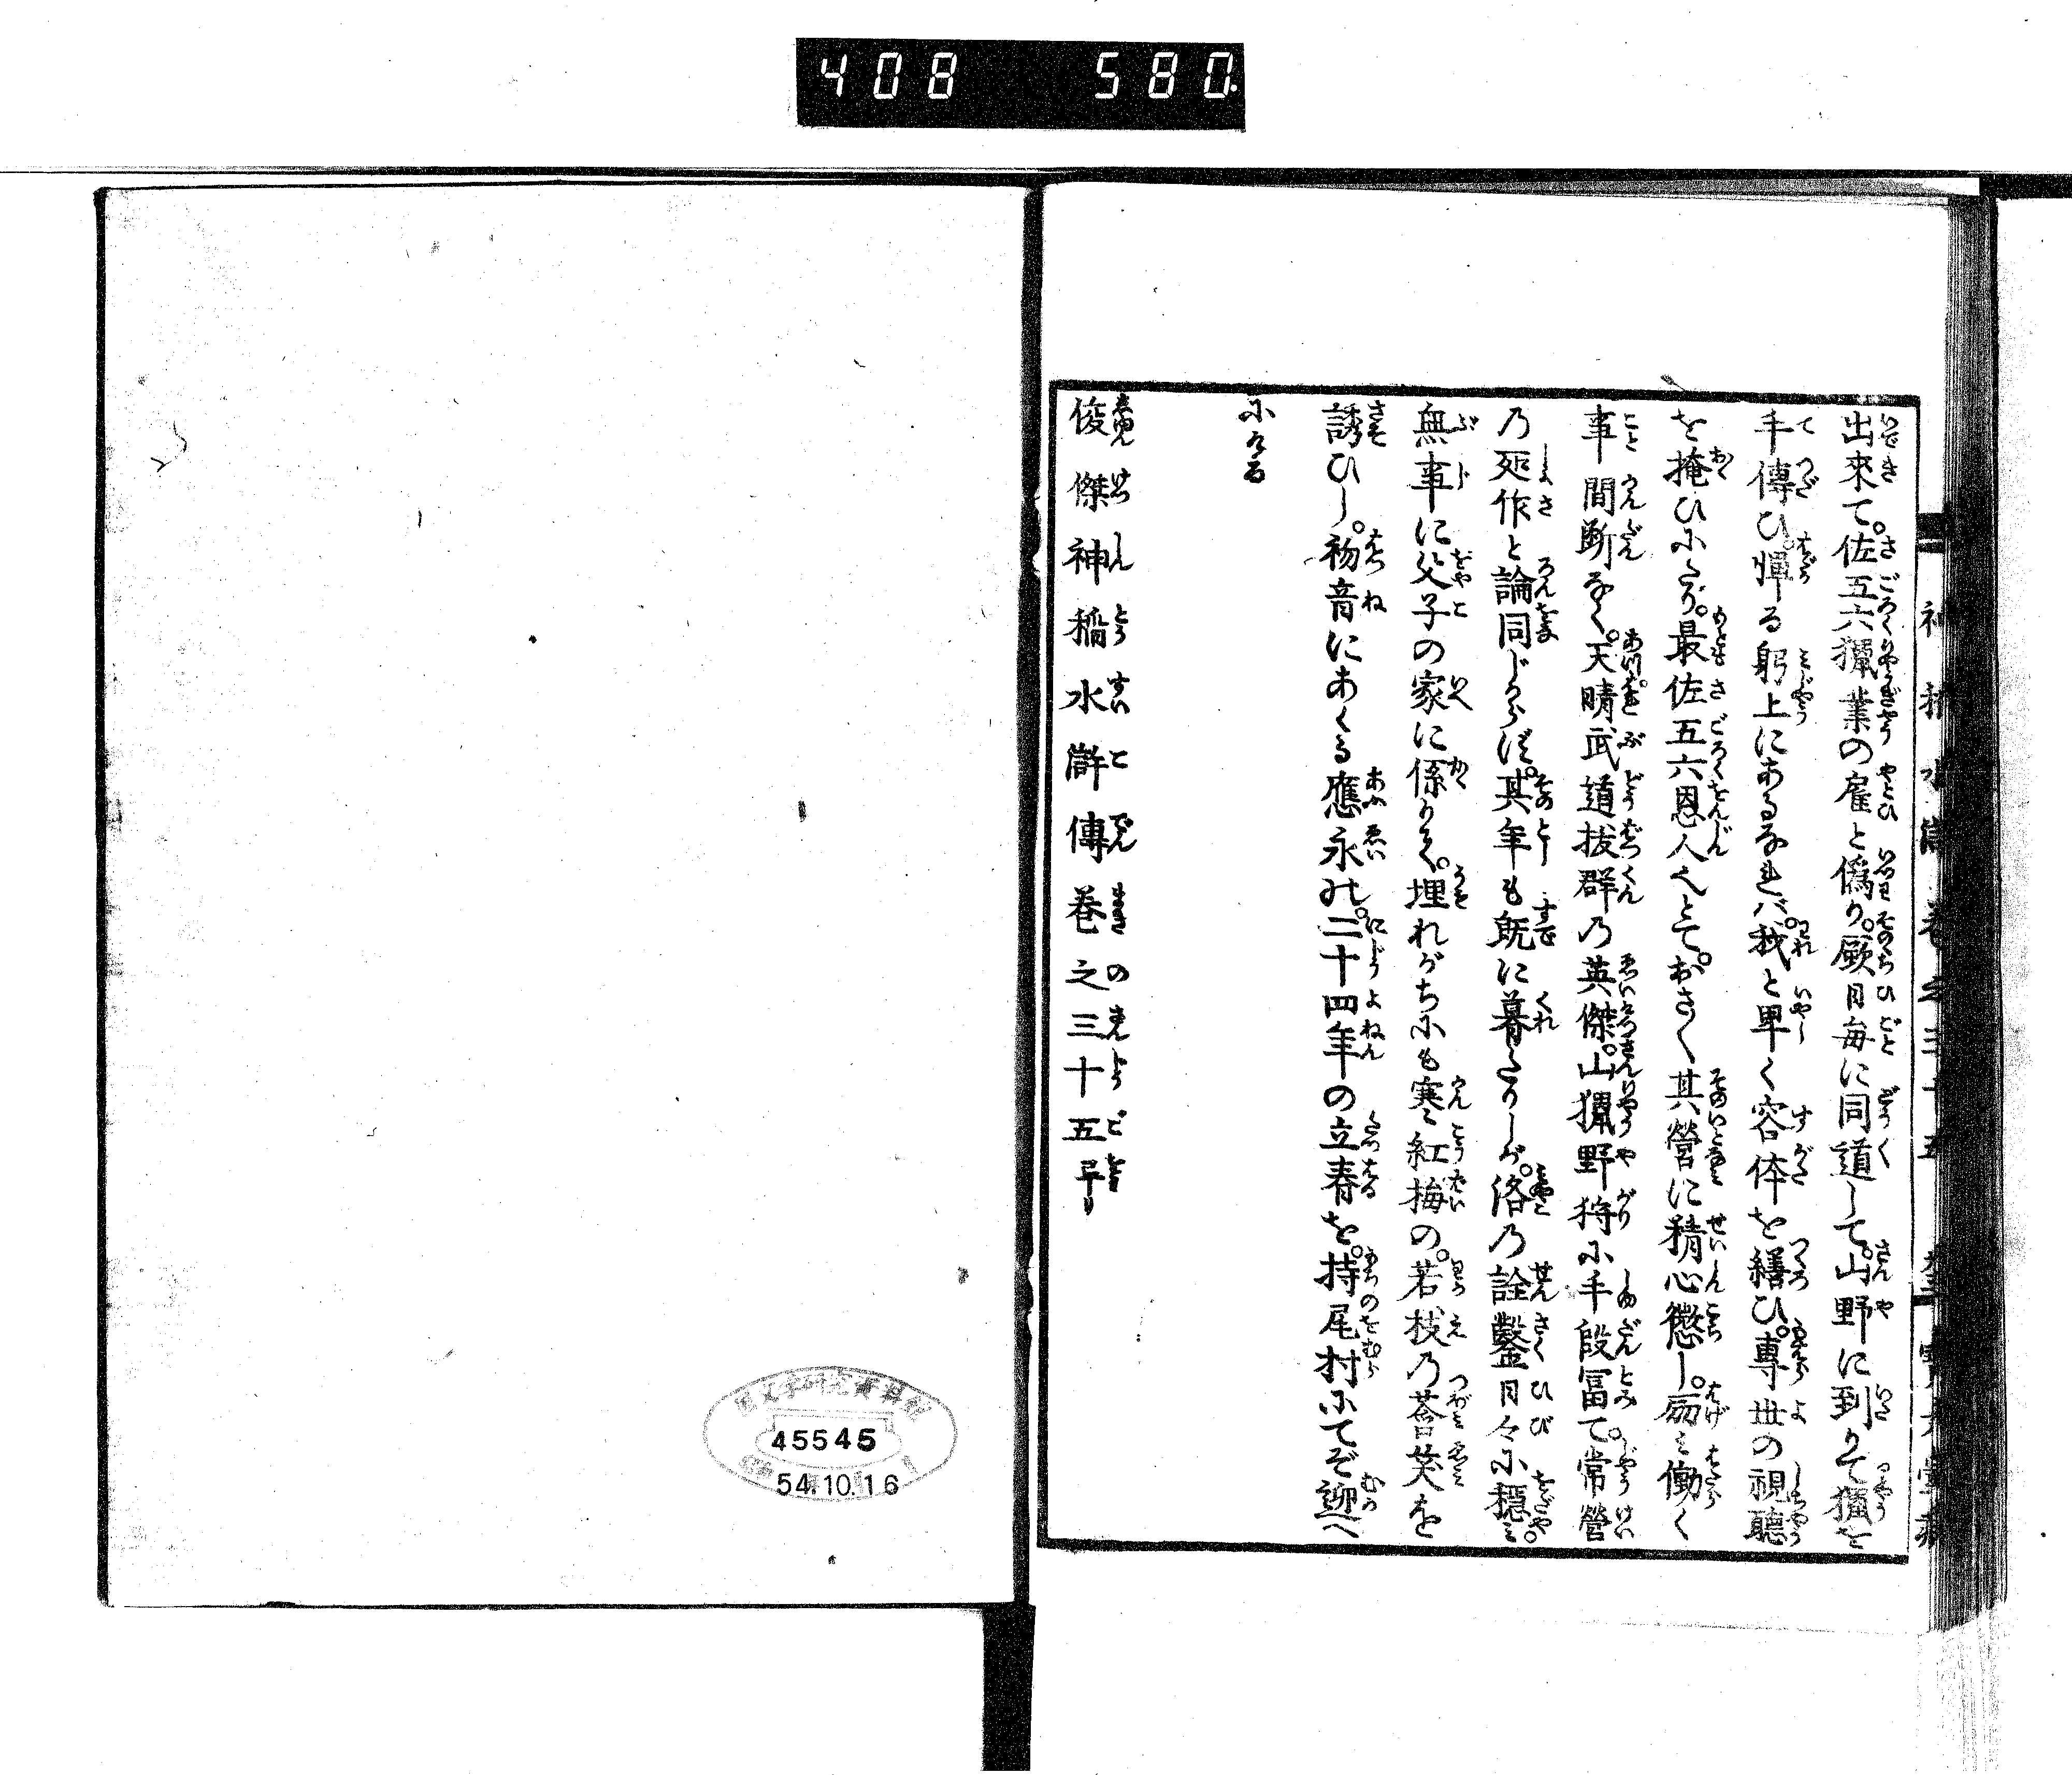 408 580.
出來て。佐五六獵業の雇と僞り。厥日毎に同道して。山野に到りて獵を
手傳ひ。憚る躬上にあるなれバ。我と卑く容体を繕ひ。專世の視聽
を掩ひにけり。最佐五六恩人也とて。おさ〱其營に精心懲し。勵み働く
事間断なく。天晴武道抜群の英傑。山獵野狩に手段冨て。常營
の所作と論同じからず。其年も既に暮たりしが。洛の詮鑿日々に穏ミ。
無事に父子の家に係りく。埋れがちにも寒紅梅の。若枝の莟笑を
誘ひし。初音にあくる應永の。二十四年の立春を。持尾村にてぞ迎へ
にける
俊傑神稲水滸傳巻之三十五早
45545
54.10.16